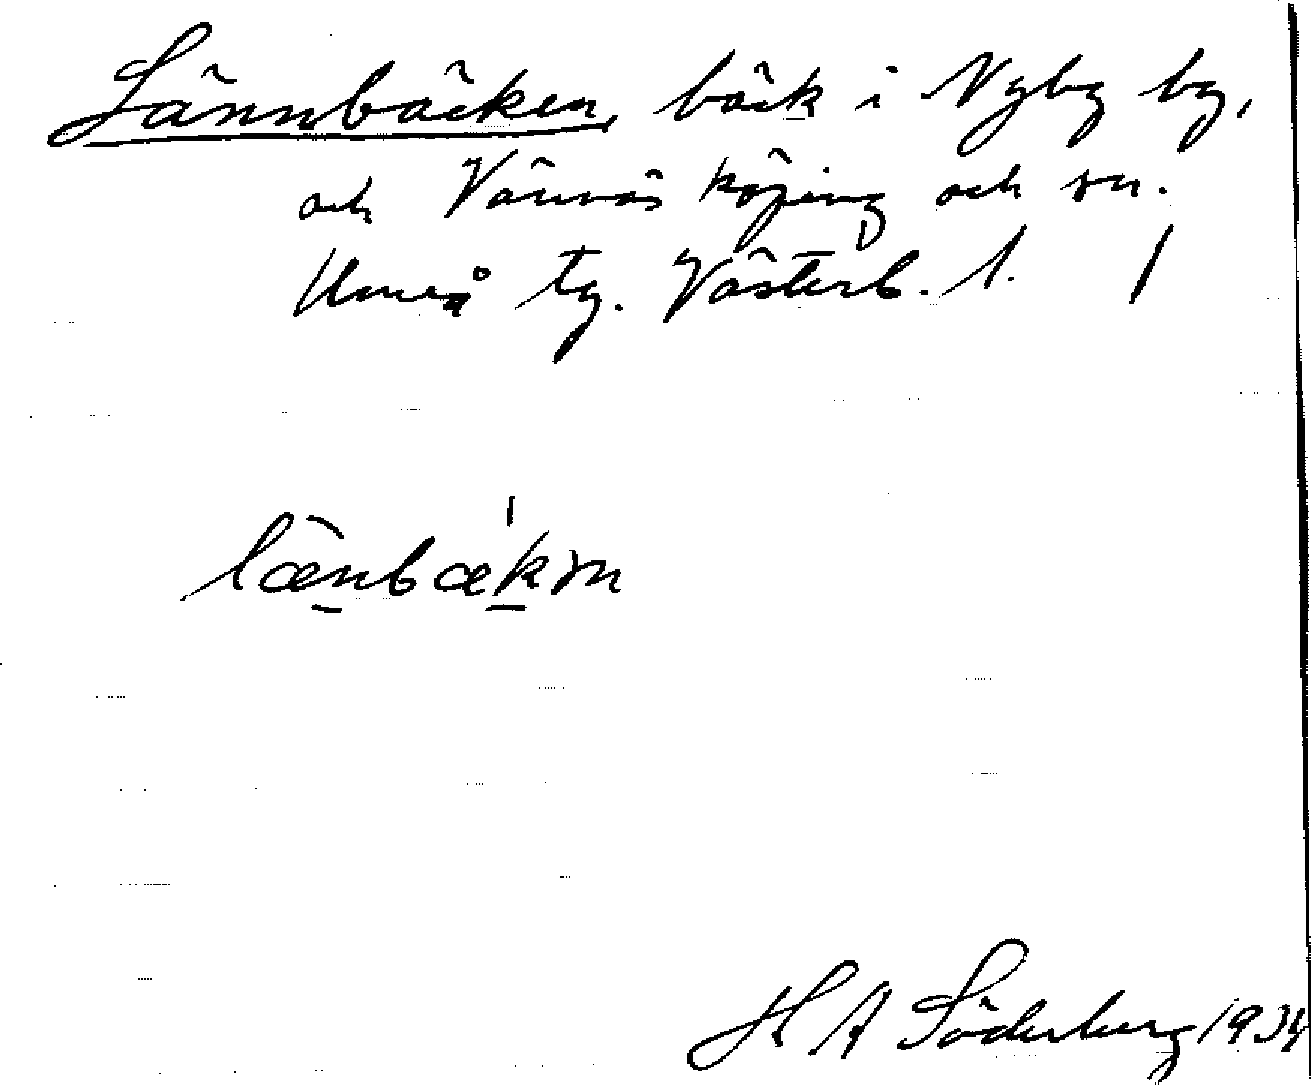 Lännbäcken, bäck i Nyby by,
och Vännäs köping och sn.
Umeå tg. Västerb. l.
lænbækən
H A Söderberg 1934